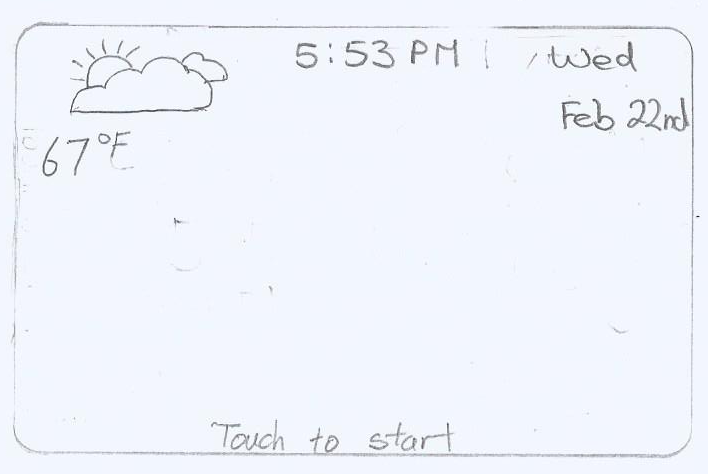 5:53 PM Wed
Feb 22nd
67°F
Touch to start